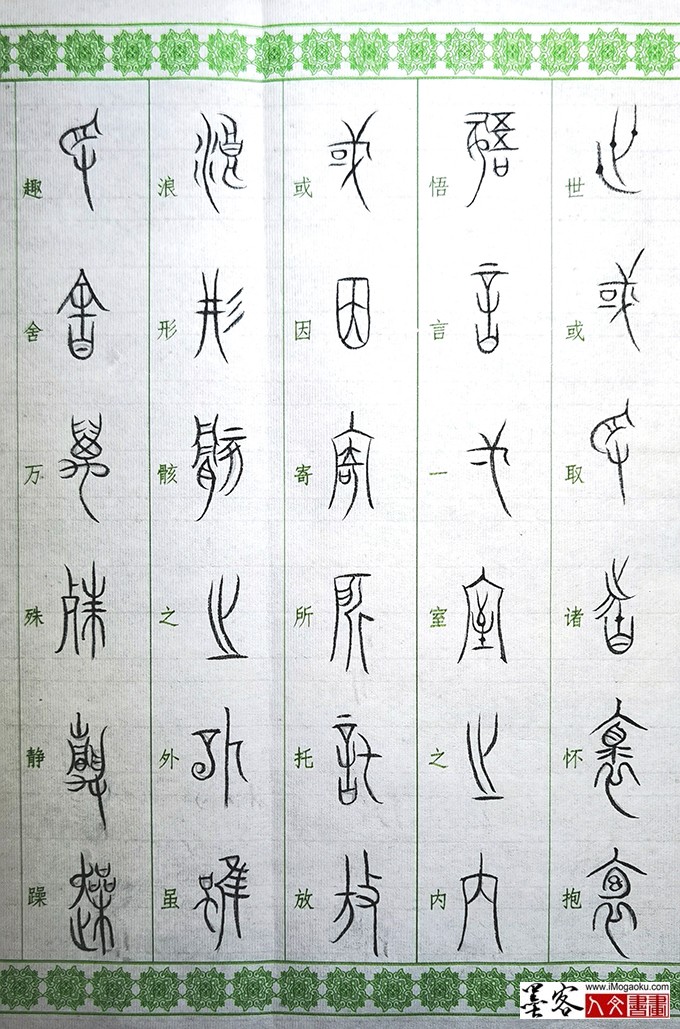 世或取诸怀抱
悟言一室之内
或因寄所托放
浪形骸之外虽
趣舍万殊静躁
墨客
www.iMogaoku.com
人文書畫